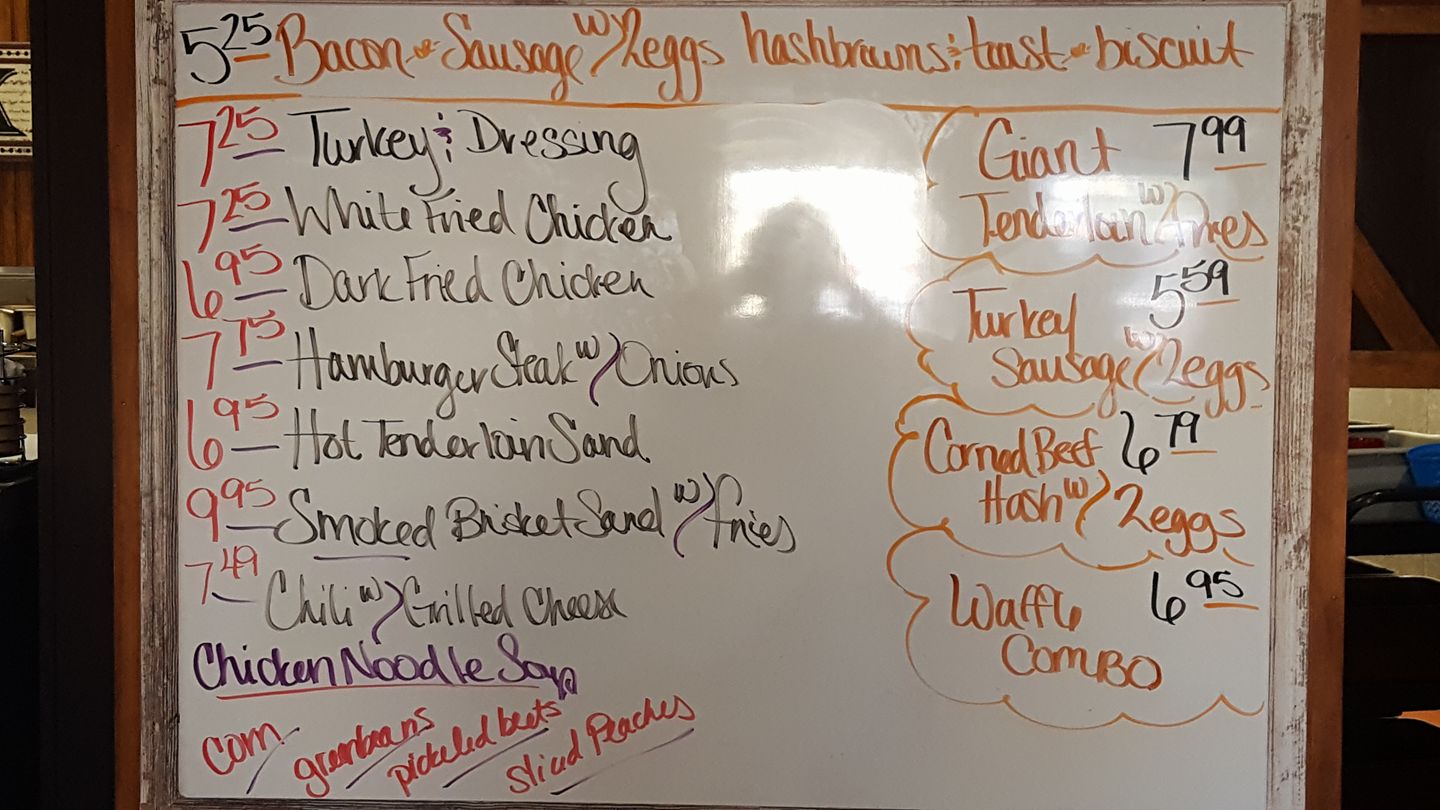 5.25 Bacon or Sausage w/ 2eggs hashbrowns & toast or biscuit
7.25 Turkey & Dressing
7.25 White Fried Chicken
6.95 Dark Fried Chicken
7.75 Hamburger Steak w/ Onions
6.95 Hot Tenderloin Sand
9.95 Smoked Brisket Sand w/ fries
7.49 Chili w/ Grilled Cheese
Chicken Noodle Soup
Corn
greenbeans
pickeled beets
Sliced Peaches
Giant 7.99
Tenderloin w/ fries
5.59
Turkey
Sausage w/ 2eggs
Corned Beef 6.79
Hash w/ 2eggs
Waffle 6.95
Combo